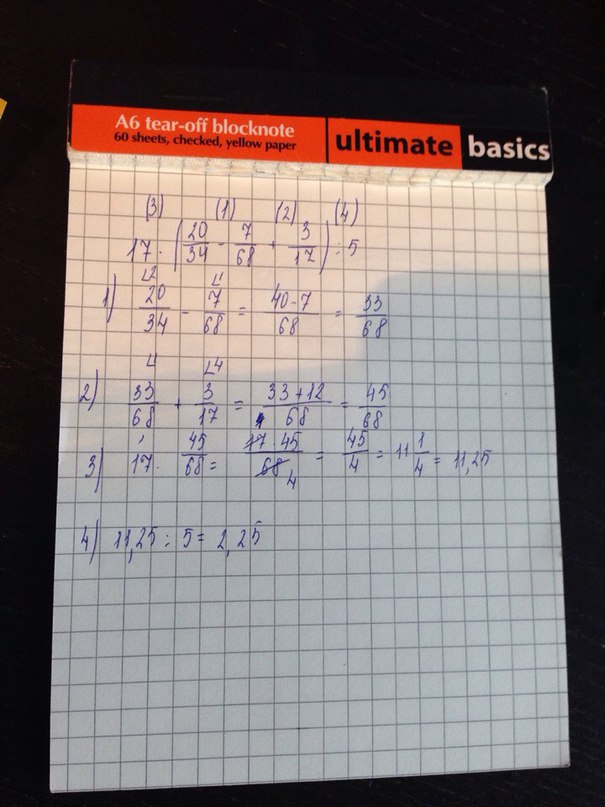 A6 tear-off blocknote
60 sheets, checked, yellow paper
ultimate basics
(3) (1) (2) (4)
17 · (20/34 - 7/68 + 3/17) : 5
1) 20/34 - 7/68 = 40-7/68 = 33/68
2) 33/68 + 3/17 = 33+12/68 = 45/68
3) 17 · 45/68 = 17·45/68 4 = 45/4 = 11 1/4 = 11,25
4) 11,25 : 5 = 2,25